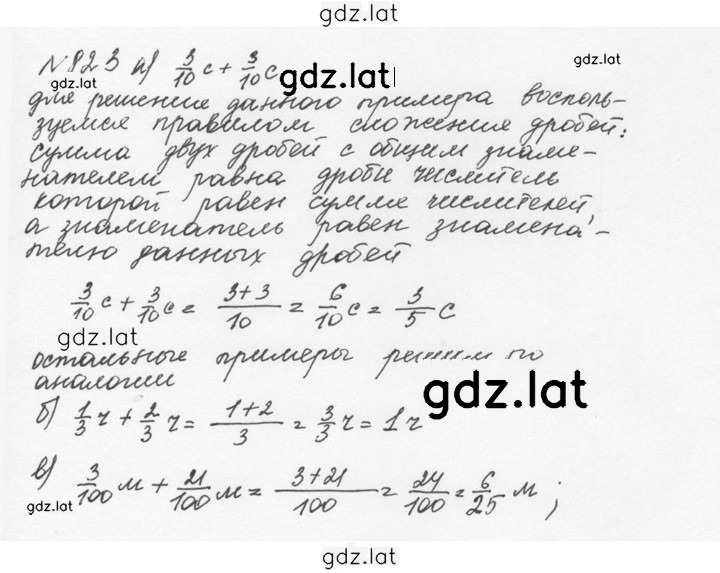 gdz.lat
№823 а) 3/10 с + 3/10 с
gdz.lat
gdz.lat
gdz.lat
для решения данного примера восполь-
зуемся правилом сложения дробей:
сумма двух дробей с общим знаме-
нателем равна дроби числитель
которой равен сумме числителей,
а знаменатель равен знамена-
телю данных дробей
3/10 с + 3/10 с = (3+3)/10 = 6/10 с = 3/5 с
gdz.lat
остальные примеры решим по
аналогии
gdz.lat
б) 1/3 ч + 2/3 ч = (1+2)/3 = 3/3 ч = 1 ч
в) 3/100 м + 21/100 м = (3+21)/100 = 24/100 = 6/25 м ;
gdz.lat
gdz.lat